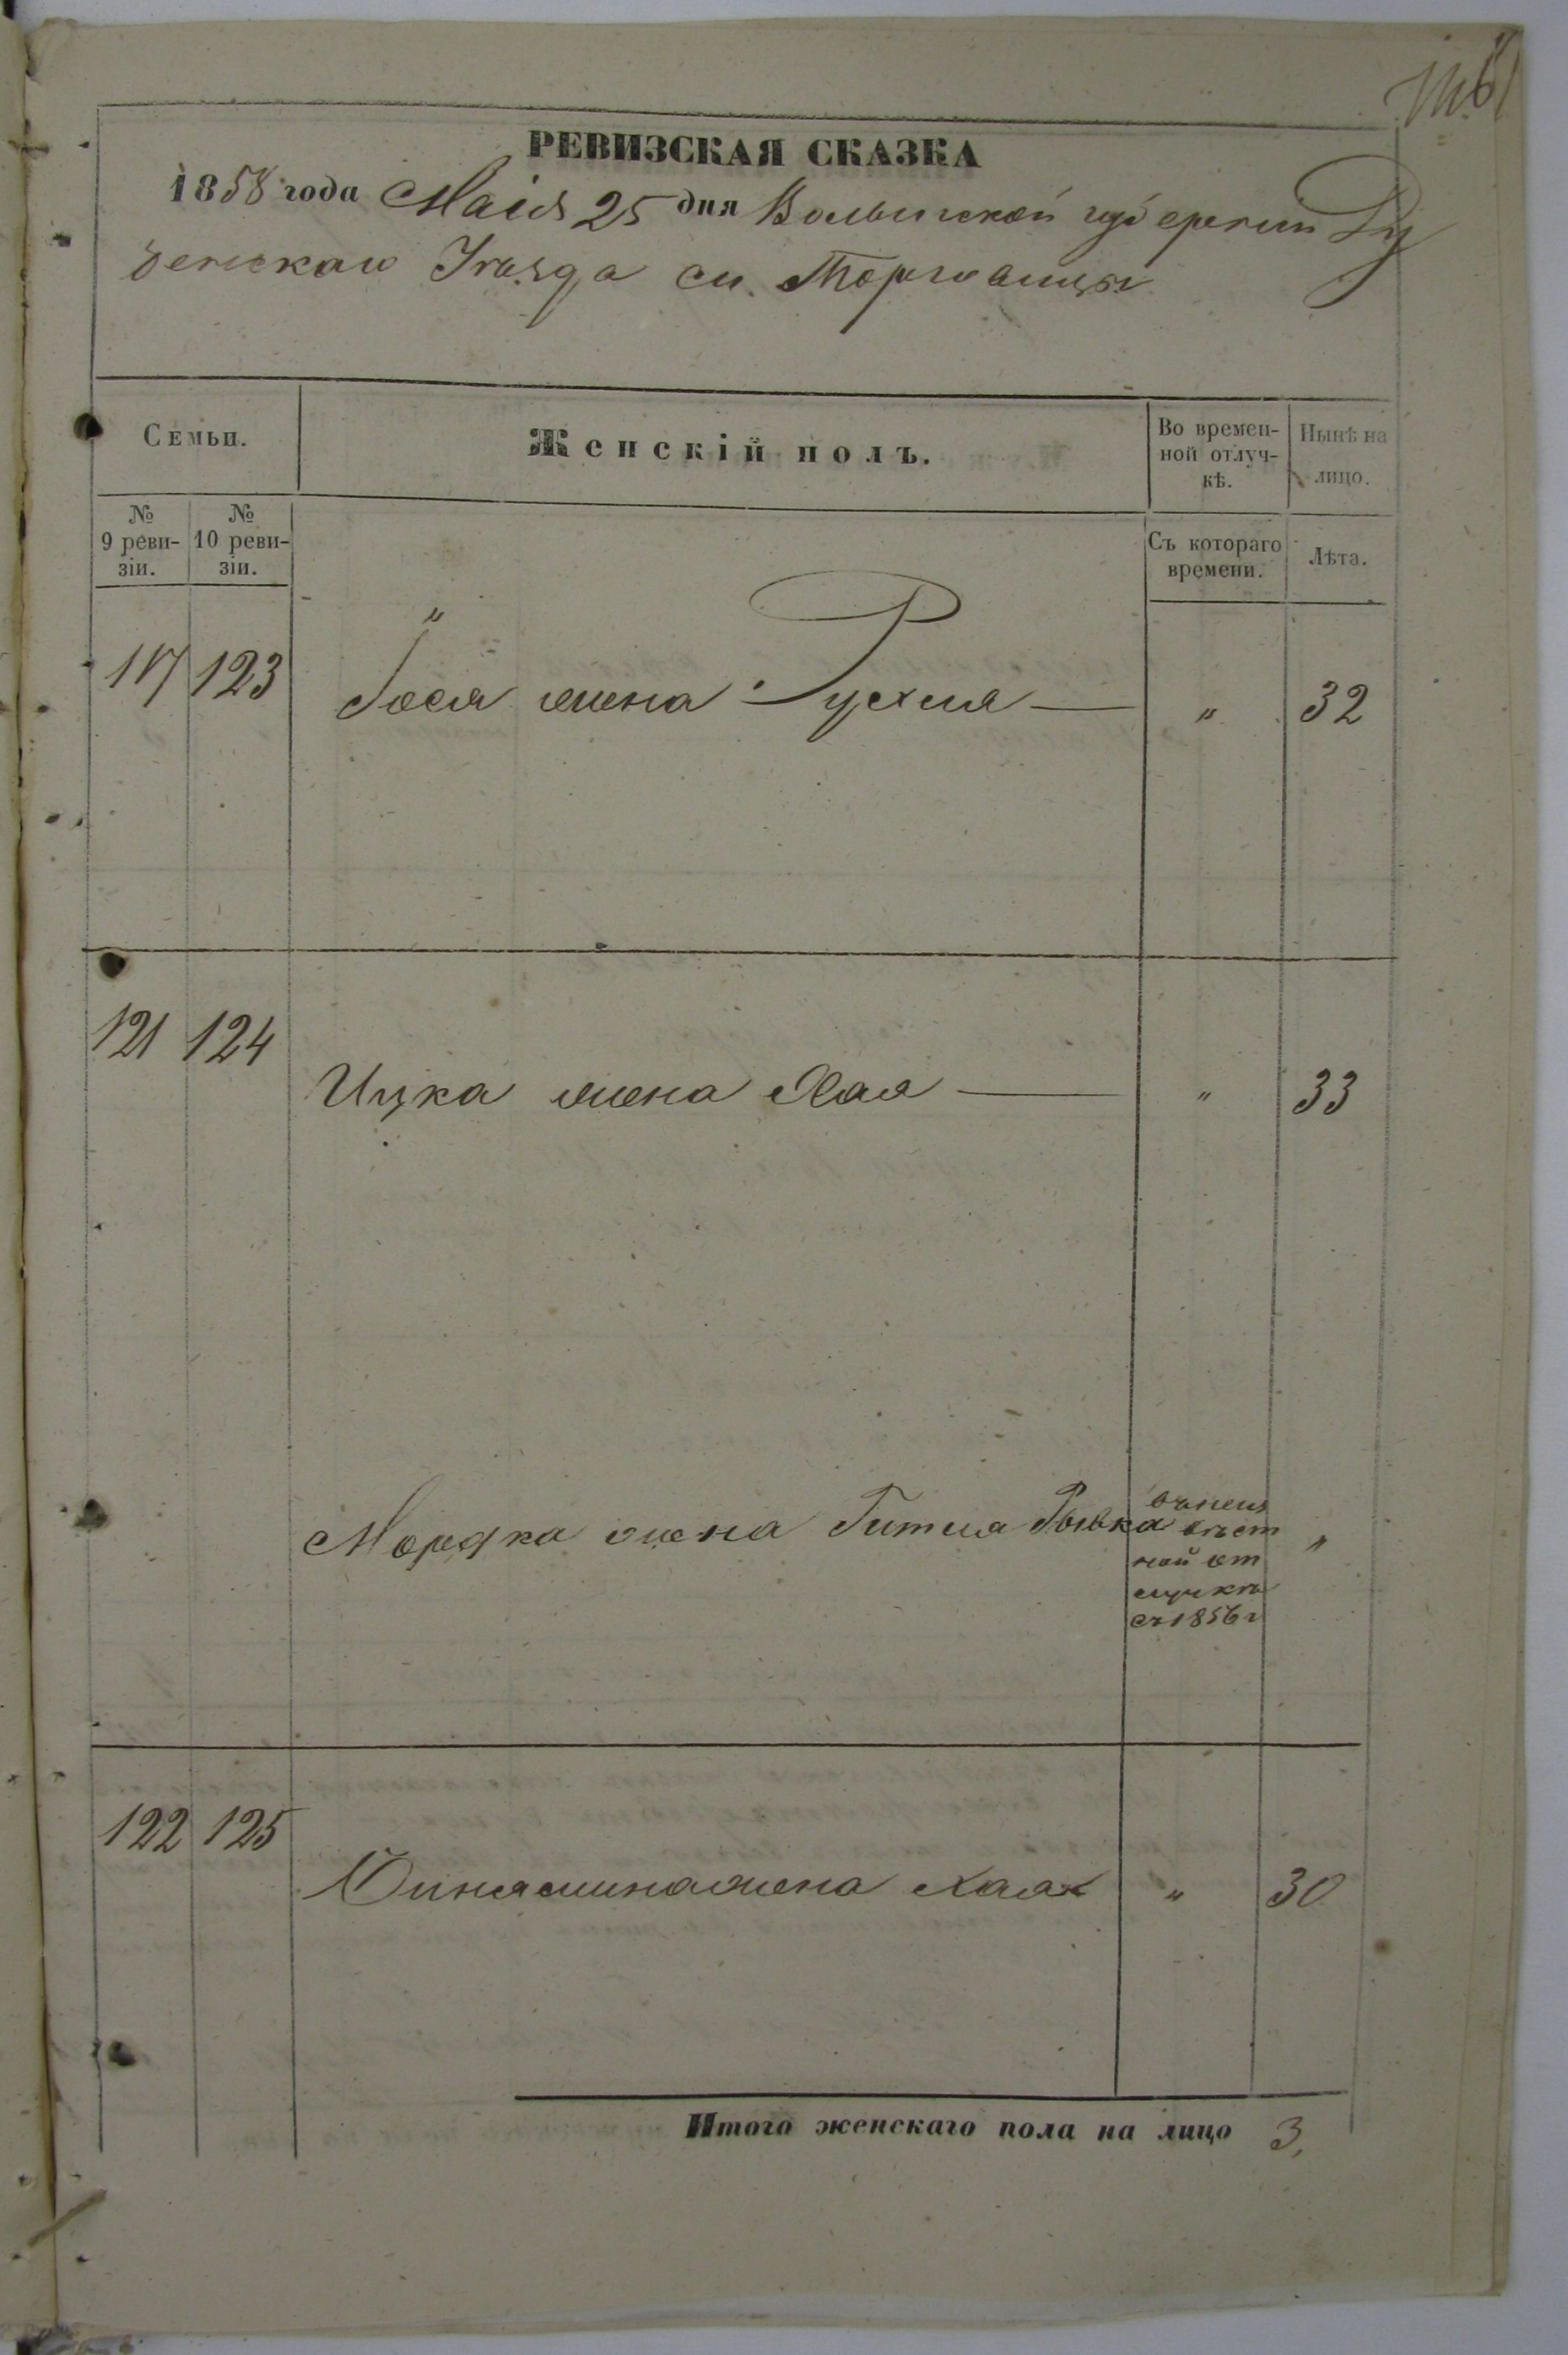 РЕВИЗСКАЯ СКАЗКА
1858 года Маія 25 дня Волынской губерніи Ду
бенскаго Уѣзда м. Торговицы
Семьи.
Женскій полъ.
Во времен-
ной отлуч-
кѣ.
Нынѣ на
лицо.
№
9 реви-
зіи.
№
10 реви-
зіи.
Съ котораго
времени.
Лѣта.
"
117 123 жена Рухля — " 32
121 124
Ицка жена Хая — " 33
Мордка жена Гитля Рывка "
въ неиз
вѣст
ной от
лучкѣ
съ 1856 г
122 125
жена Хая " 30
Итого женскаго пола на лицо 3,